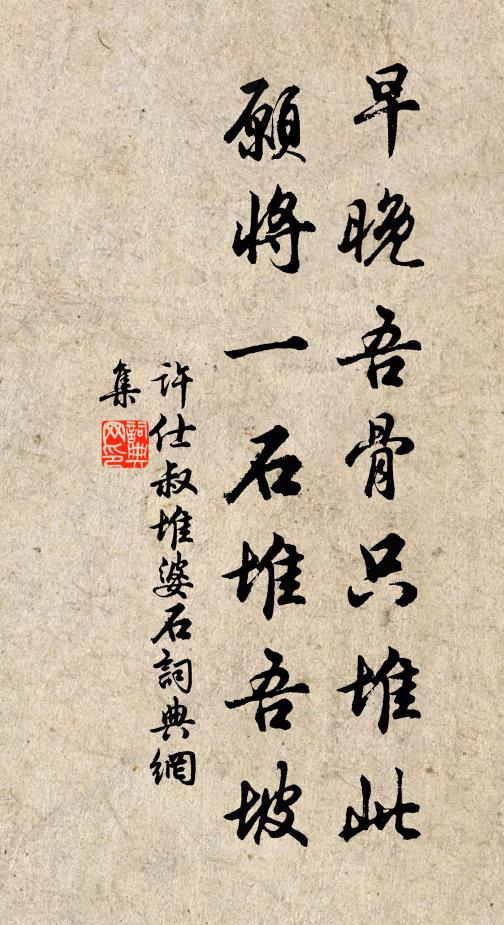 早晚吾骨只堆此
願將一石堆吾坡
許仕叔堆婆石詞典網
集
詞典
网印